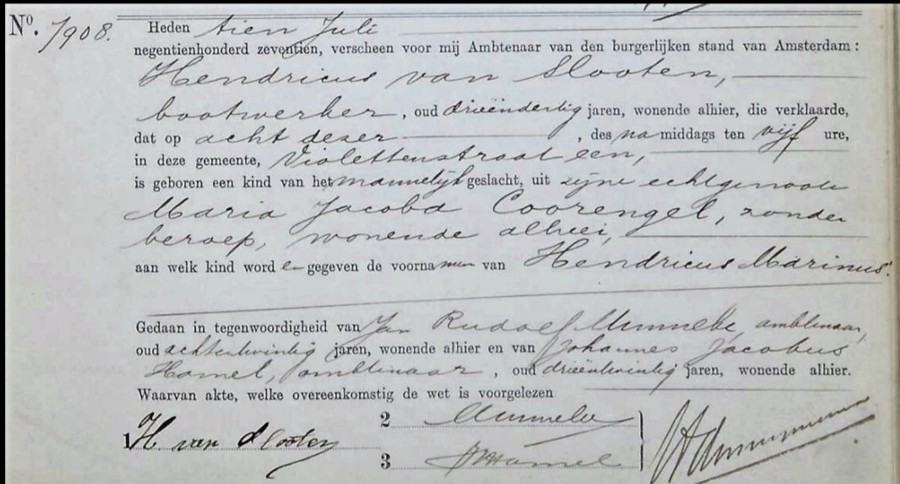 Nº. 7908. Heden tien Juli
negentienhonderd zeventien, verscheen voor mij Ambtenaar van den burgerlijken stand van Amsterdam:
Hendricus van Slooten,
bootwerker, oud drieëndertig jaren, wonende alhier, die verklaarde,
dat op acht dezer, des namiddags ten vijf ure,
in deze gemeente, Violettenstraat een,
is geboren een kind van het mannelijk geslacht, uit zijne echtgenoote
Maria Jacoba Coorengel, zonder
beroep, wonende alhier,
aan welk kind worden gegeven de voornamen van Hendricus Marinus.
Gedaan in tegenwoordigheid van Jan Rudolf Munneke, ambtenaar,
oud achtentwintig jaren, wonende alhier en van Johannes Jacobus
Hamel, ambtenaar, oud drieëntwintig jaren, wonende alhier.
Waarvan akte, welke overeenkomstig de wet is voorgelezen
2 Munneke
1 H van Slooten
3 Hamel